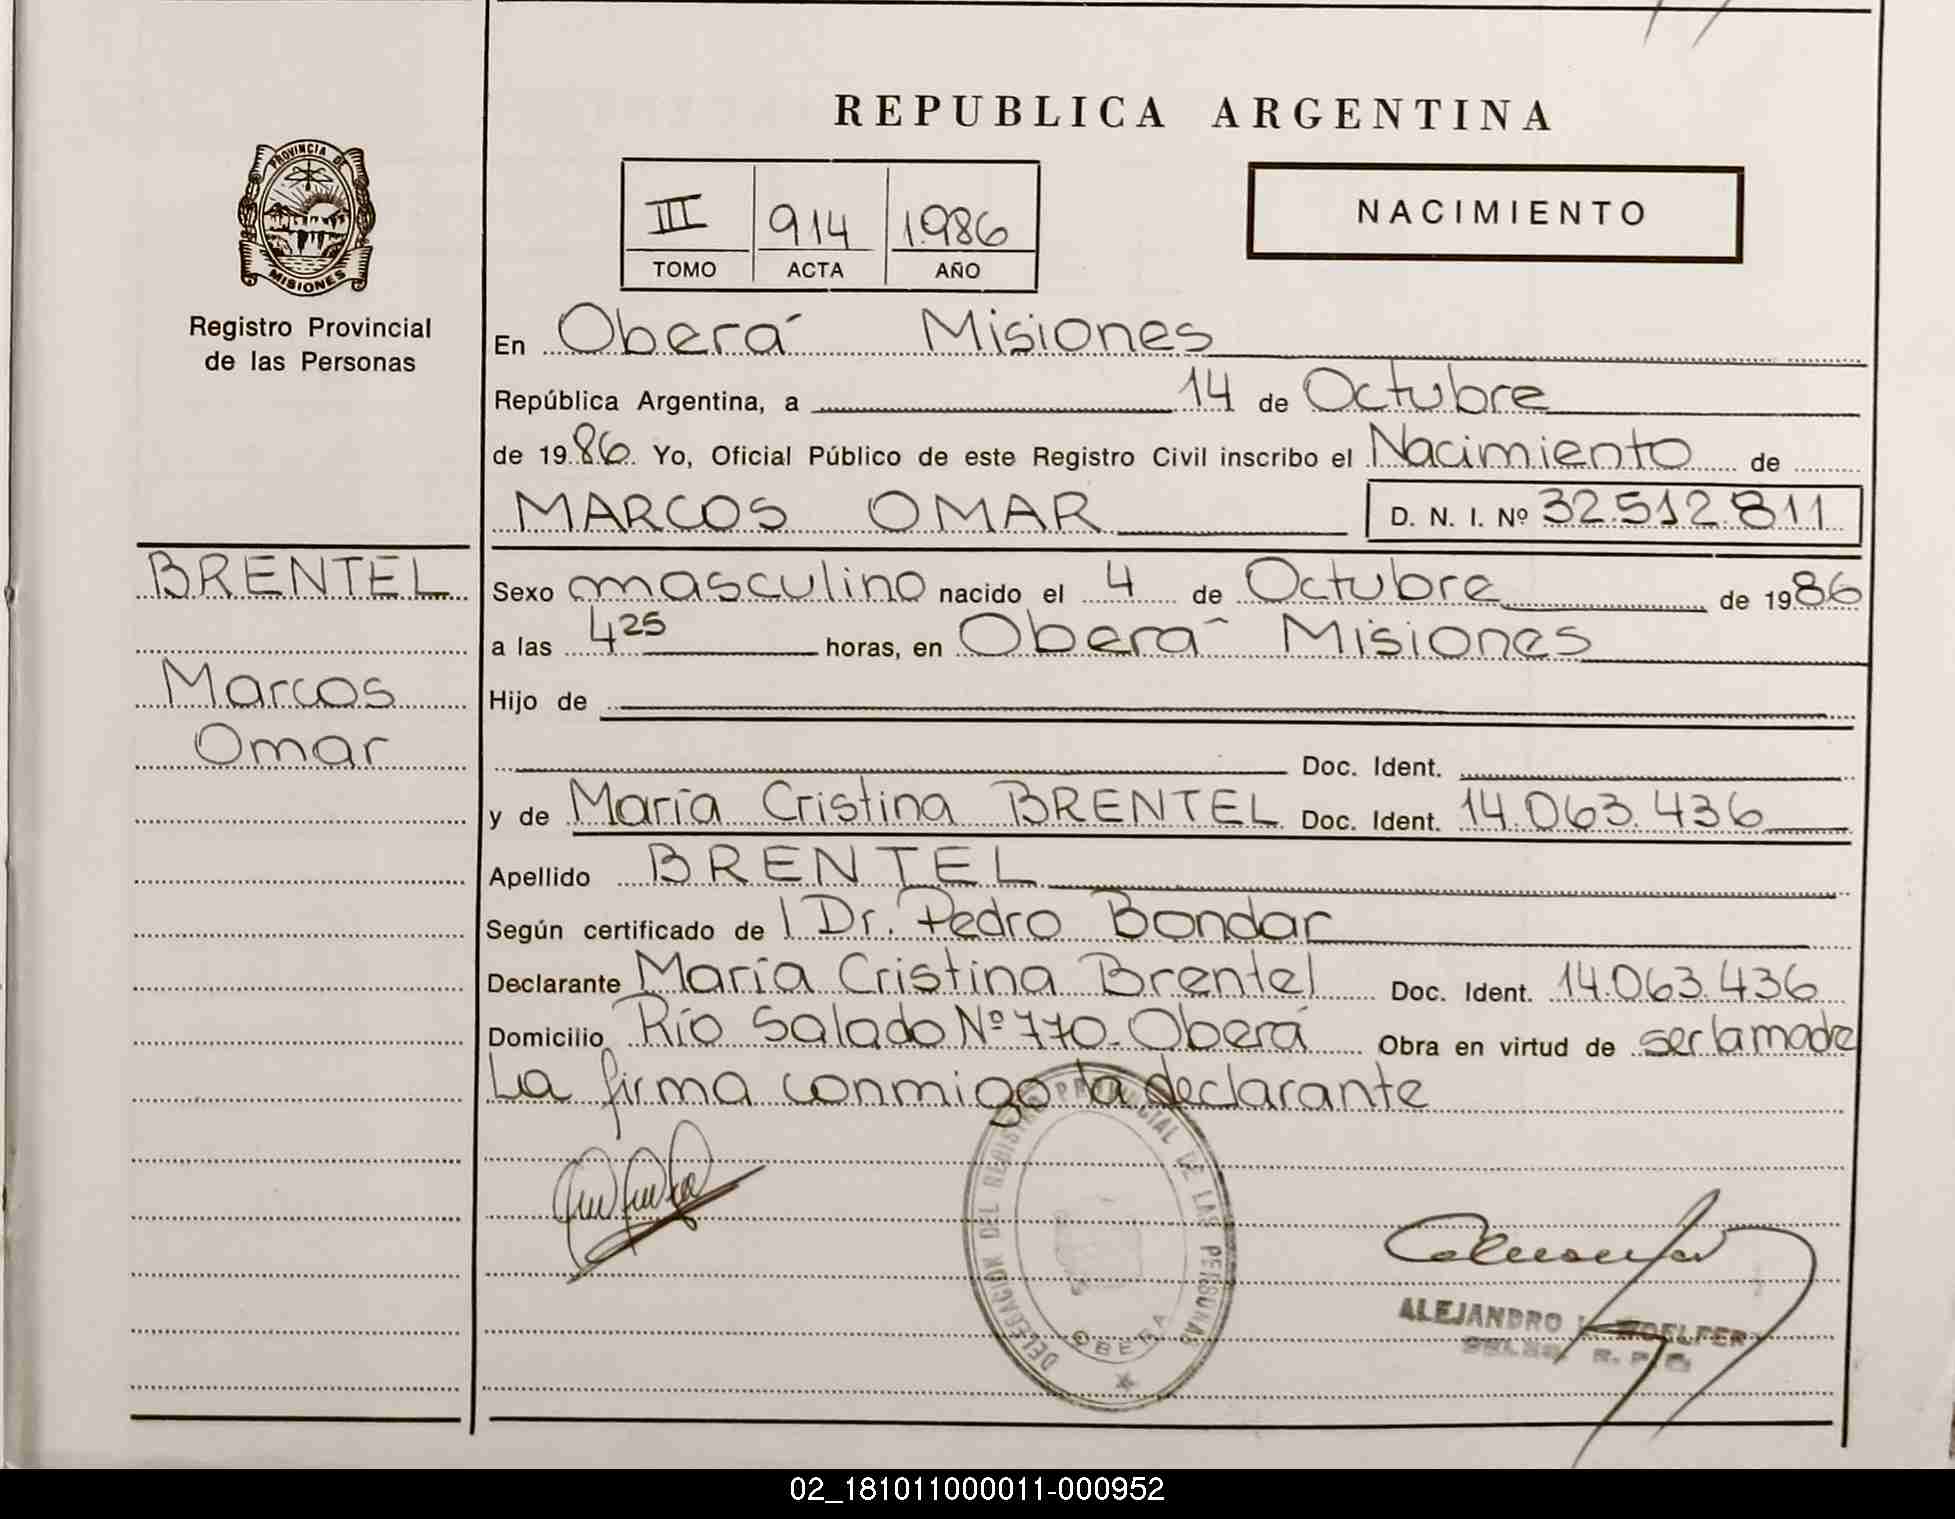 REPUBLICA ARGENTINA
PROVINCIA DE
MISIONES
Registro Provincial
de las Personas
III 914 1986
TOMO ACTA AÑO
NACIMIENTO
En Oberá Misiones
República Argentina, a 14 de Octubre
de 1986. Yo, Oficial Público de este Registro Civil inscribo el Nacimiento de
MARCOS OMAR D. N. I. Nº 32.512.811
BRENTEL
Marcos
Omar
Sexo masculino nacido el 4 de Octubre de 1986
a las 4 25 horas, en Oberá Misiones
Hijo de
Doc. Ident.
y de María Cristina BRENTEL Doc. Ident. 14.063.436
Apellido BRENTEL
Según certificado de l Dr. Pedro Bondar
Declarante María Cristina Brentel Doc. Ident. 14.063.436
Domicilio Río Salado Nº 770 - Oberá Obra en virtud de ser la madre
La firma conmigo la declarante
DELEGACION DEL REGISTRO PROVINCIAL DE LAS PERSONAS
OBERA
ALEJANDRO WOELFER
02_181011000011-000952